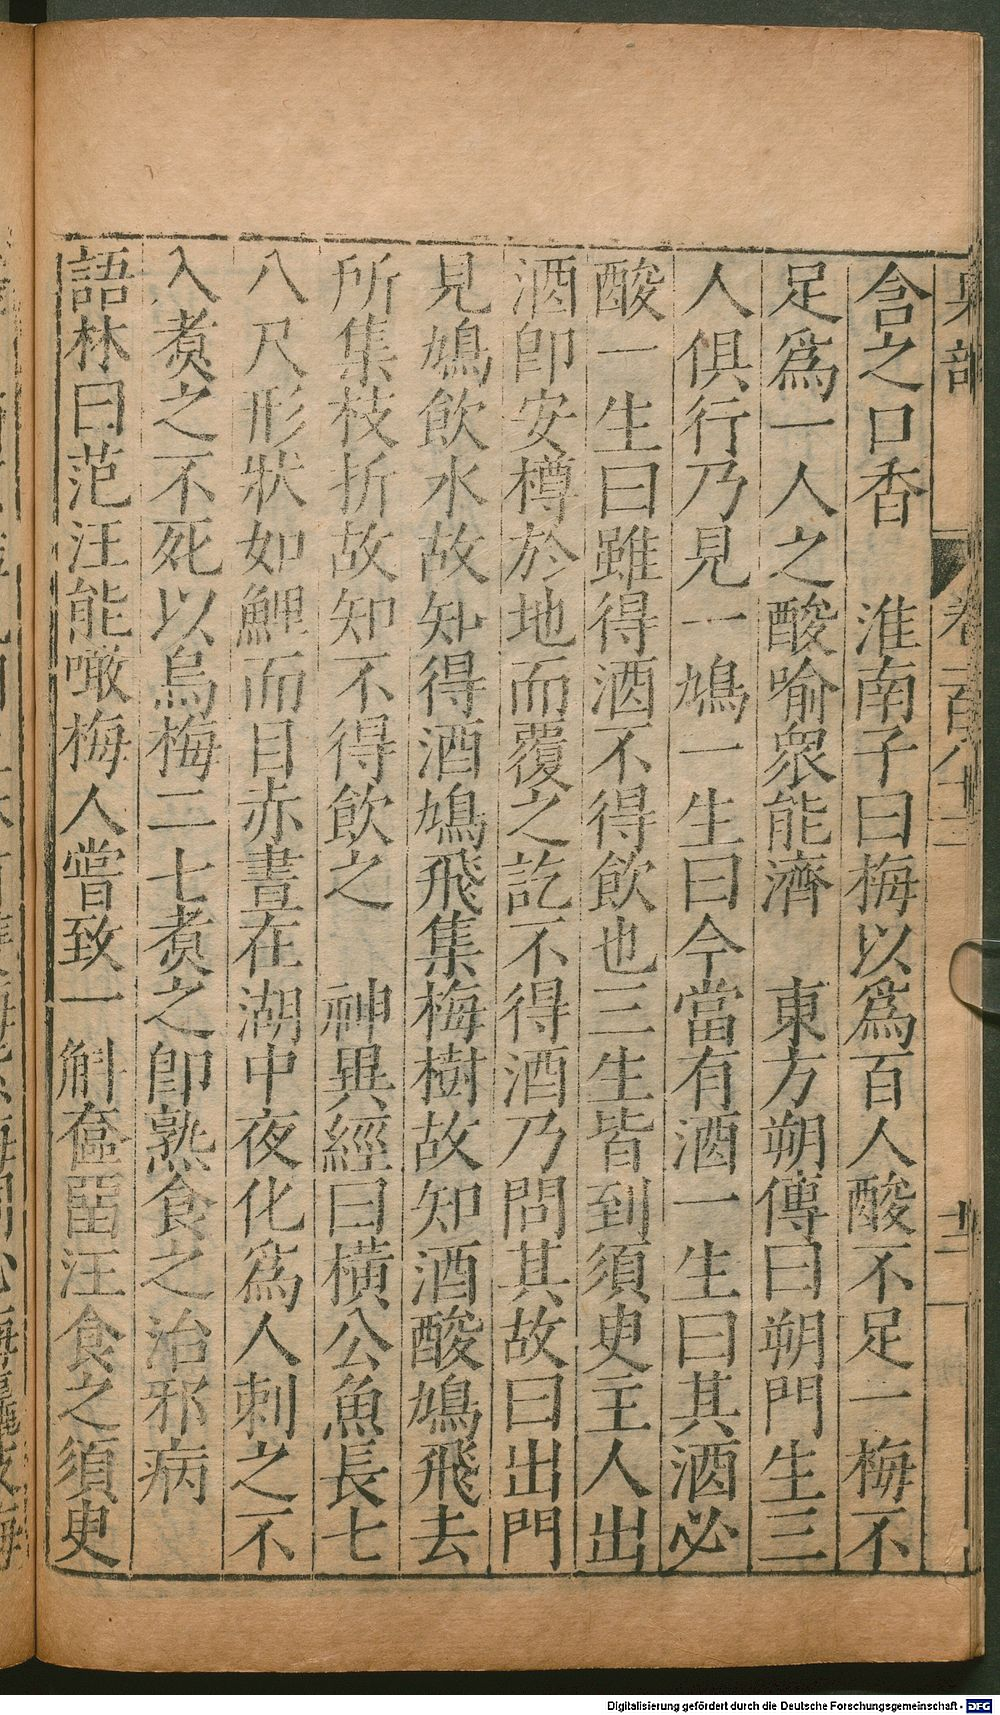 果部
卷一百八十三
含之口香　淮南子曰梅以爲百人酸不足一梅不
足爲一人之酸喻衆能濟　東方朔傳曰朔門生三
人俱行乃見一鳩一生曰今當有酒一生曰其酒必
酸一生曰雖得酒不得飲也三生皆到須臾主人出
酒卽安樽於地而覆之訖不得酒乃問其故曰出門
見鳩飲水故知得酒鳩飛集梅樹故知酒酸鳩飛去
所集枝折故知不得飲之　神異經曰橫公魚長七
八尺形狀如鯉而目赤晝在湖中夜化爲人刺之不
入煑之不死以烏梅二七煑之卽熟食之治邪病
語林曰范汪能噉梅人嘗致一斛奩畱汪食之須臾
Digitalisierung gefördert durch die Deutsche Forschungsgemeinschaft - DFG